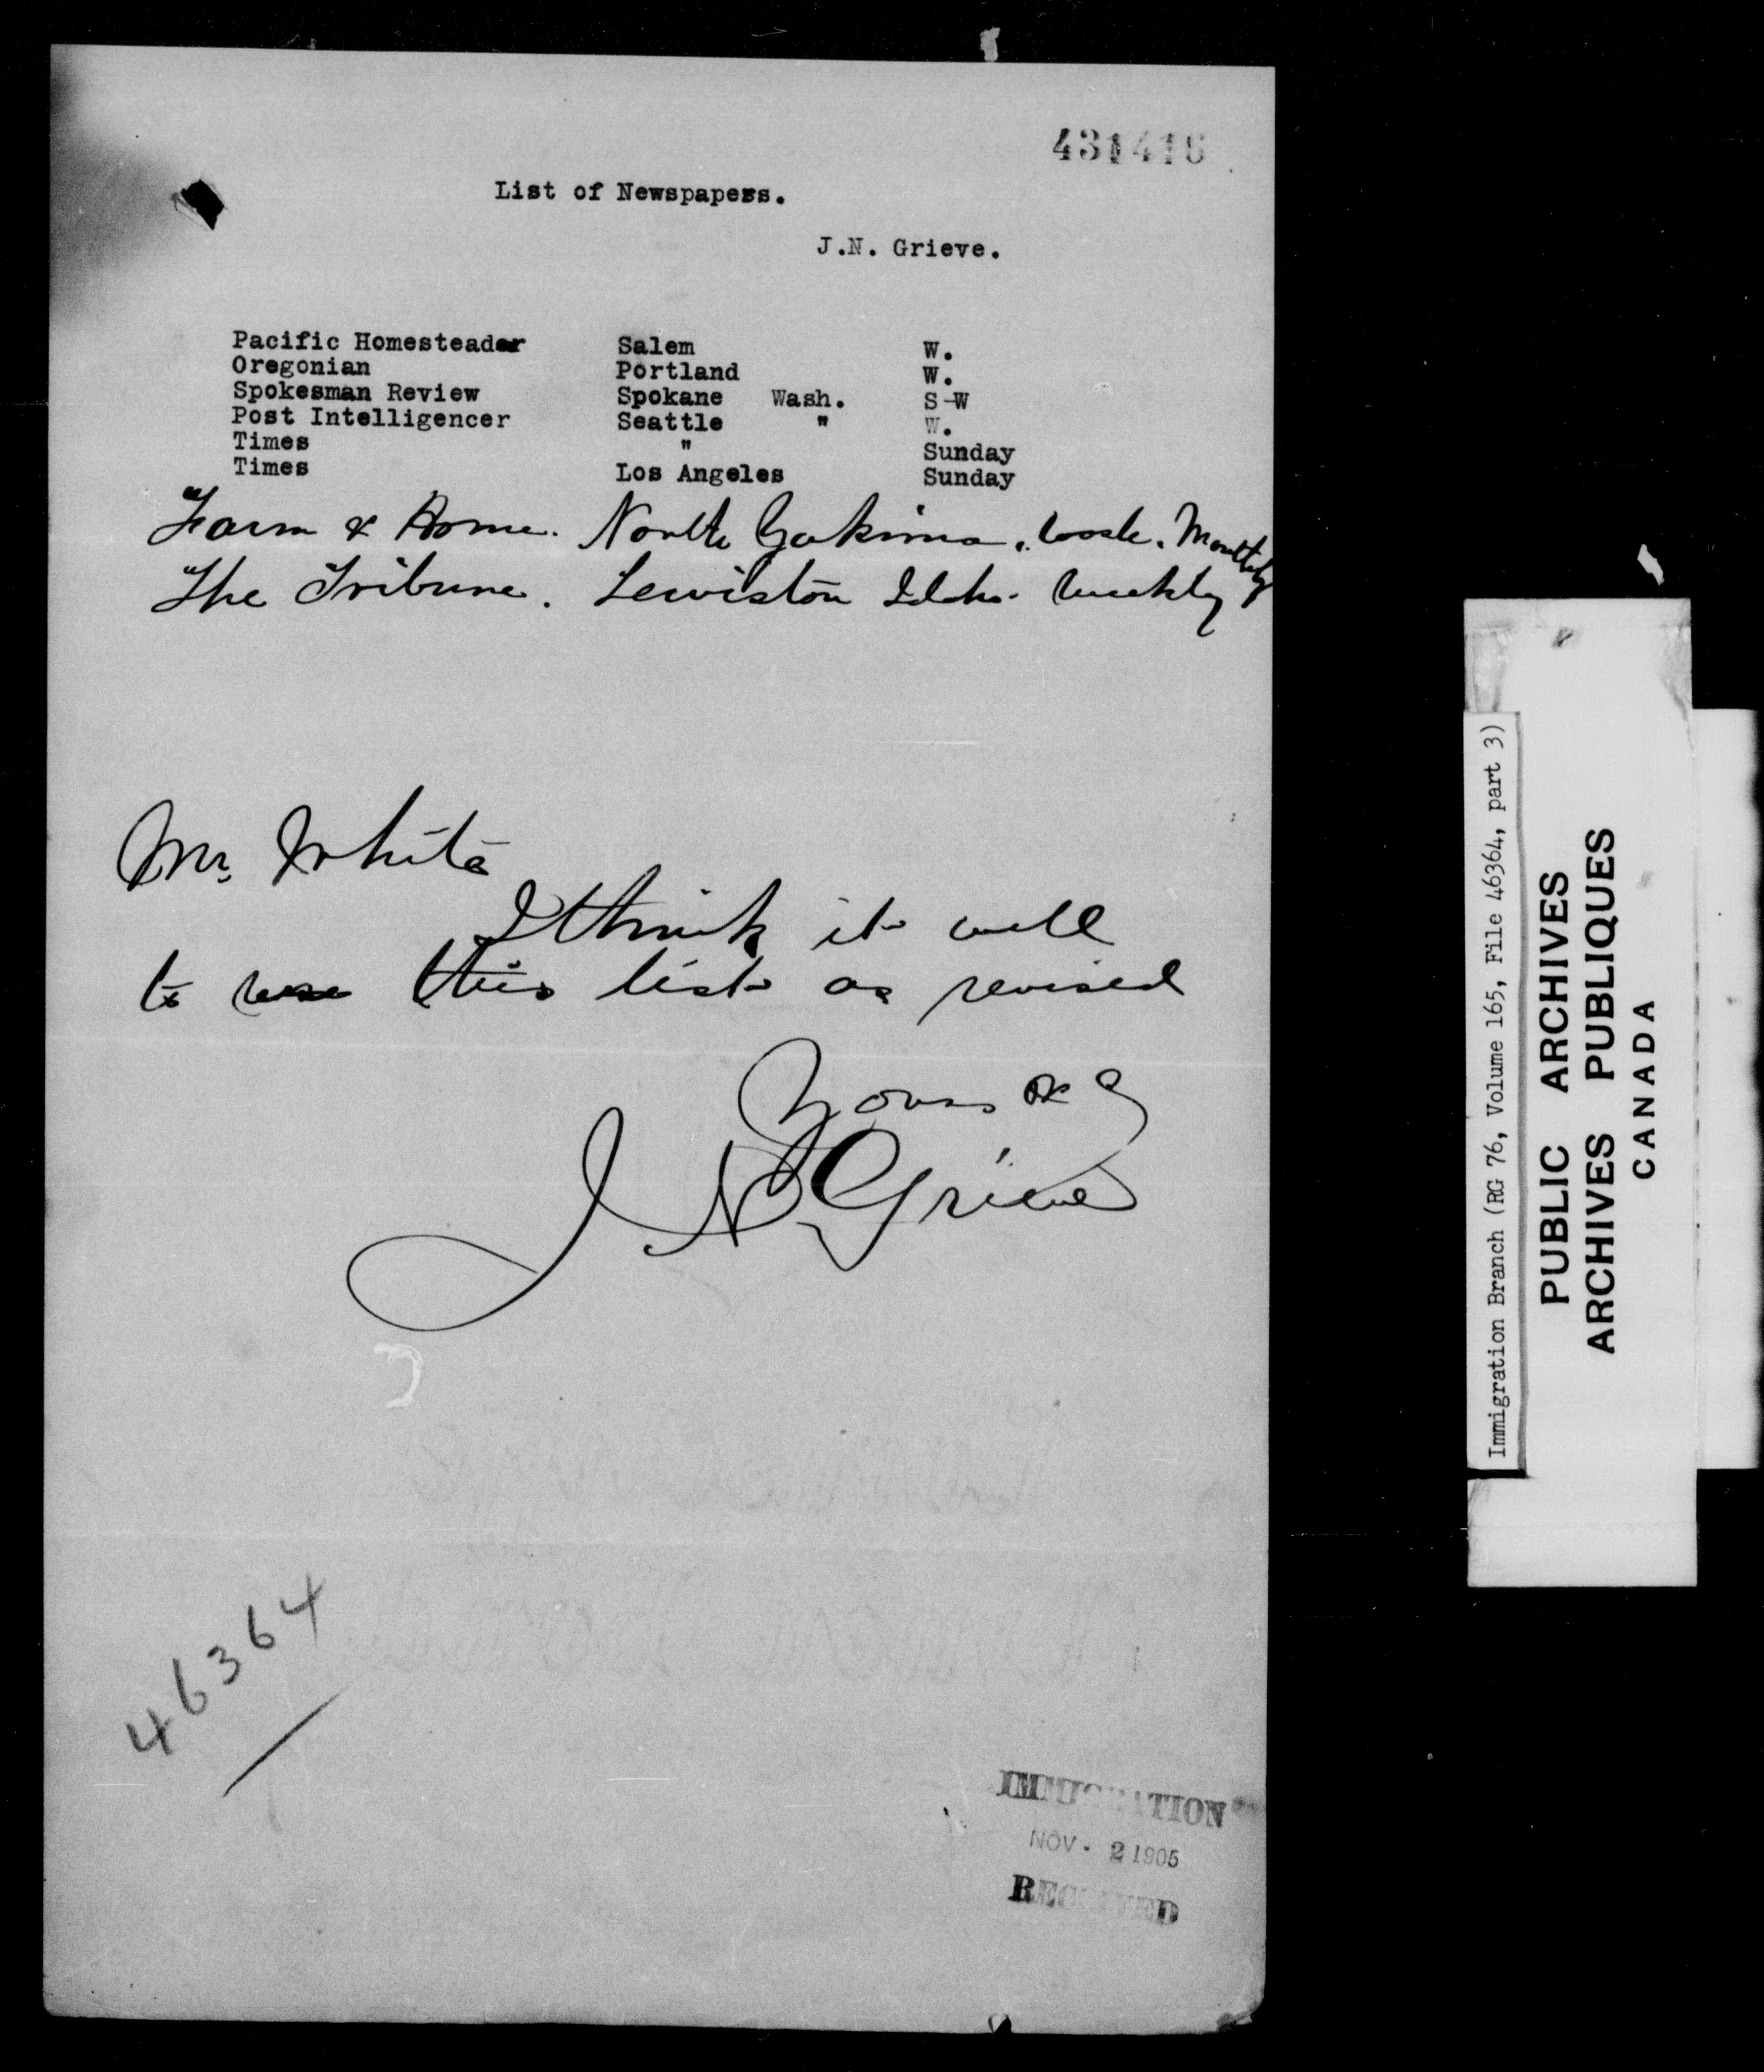 431416
List of Newspapers.
J.N. Grieve.
Pacific Homesteader Salem W.
Oregonian Portland W.
Spokesman Review Spokane Wash. S-W
Post Intelligencer Seattle " W.
Times " Sunday
Times Los Angeles Sunday
Farm & Home. North Yakima. Wash. Monthly
The Tribune. Lewiston Idho. Weekly
Mr. White
I think it well
to use this list as revised
Yours &c
J N Grieve
46364
IMMIGRATION
NOV. 2 1905
RECEIVED
Immigration Branch (RG 76, Volume 165, File 46364, part 3)
PUBLIC ARCHIVES
ARCHIVES PUBLIQUES
CANADA